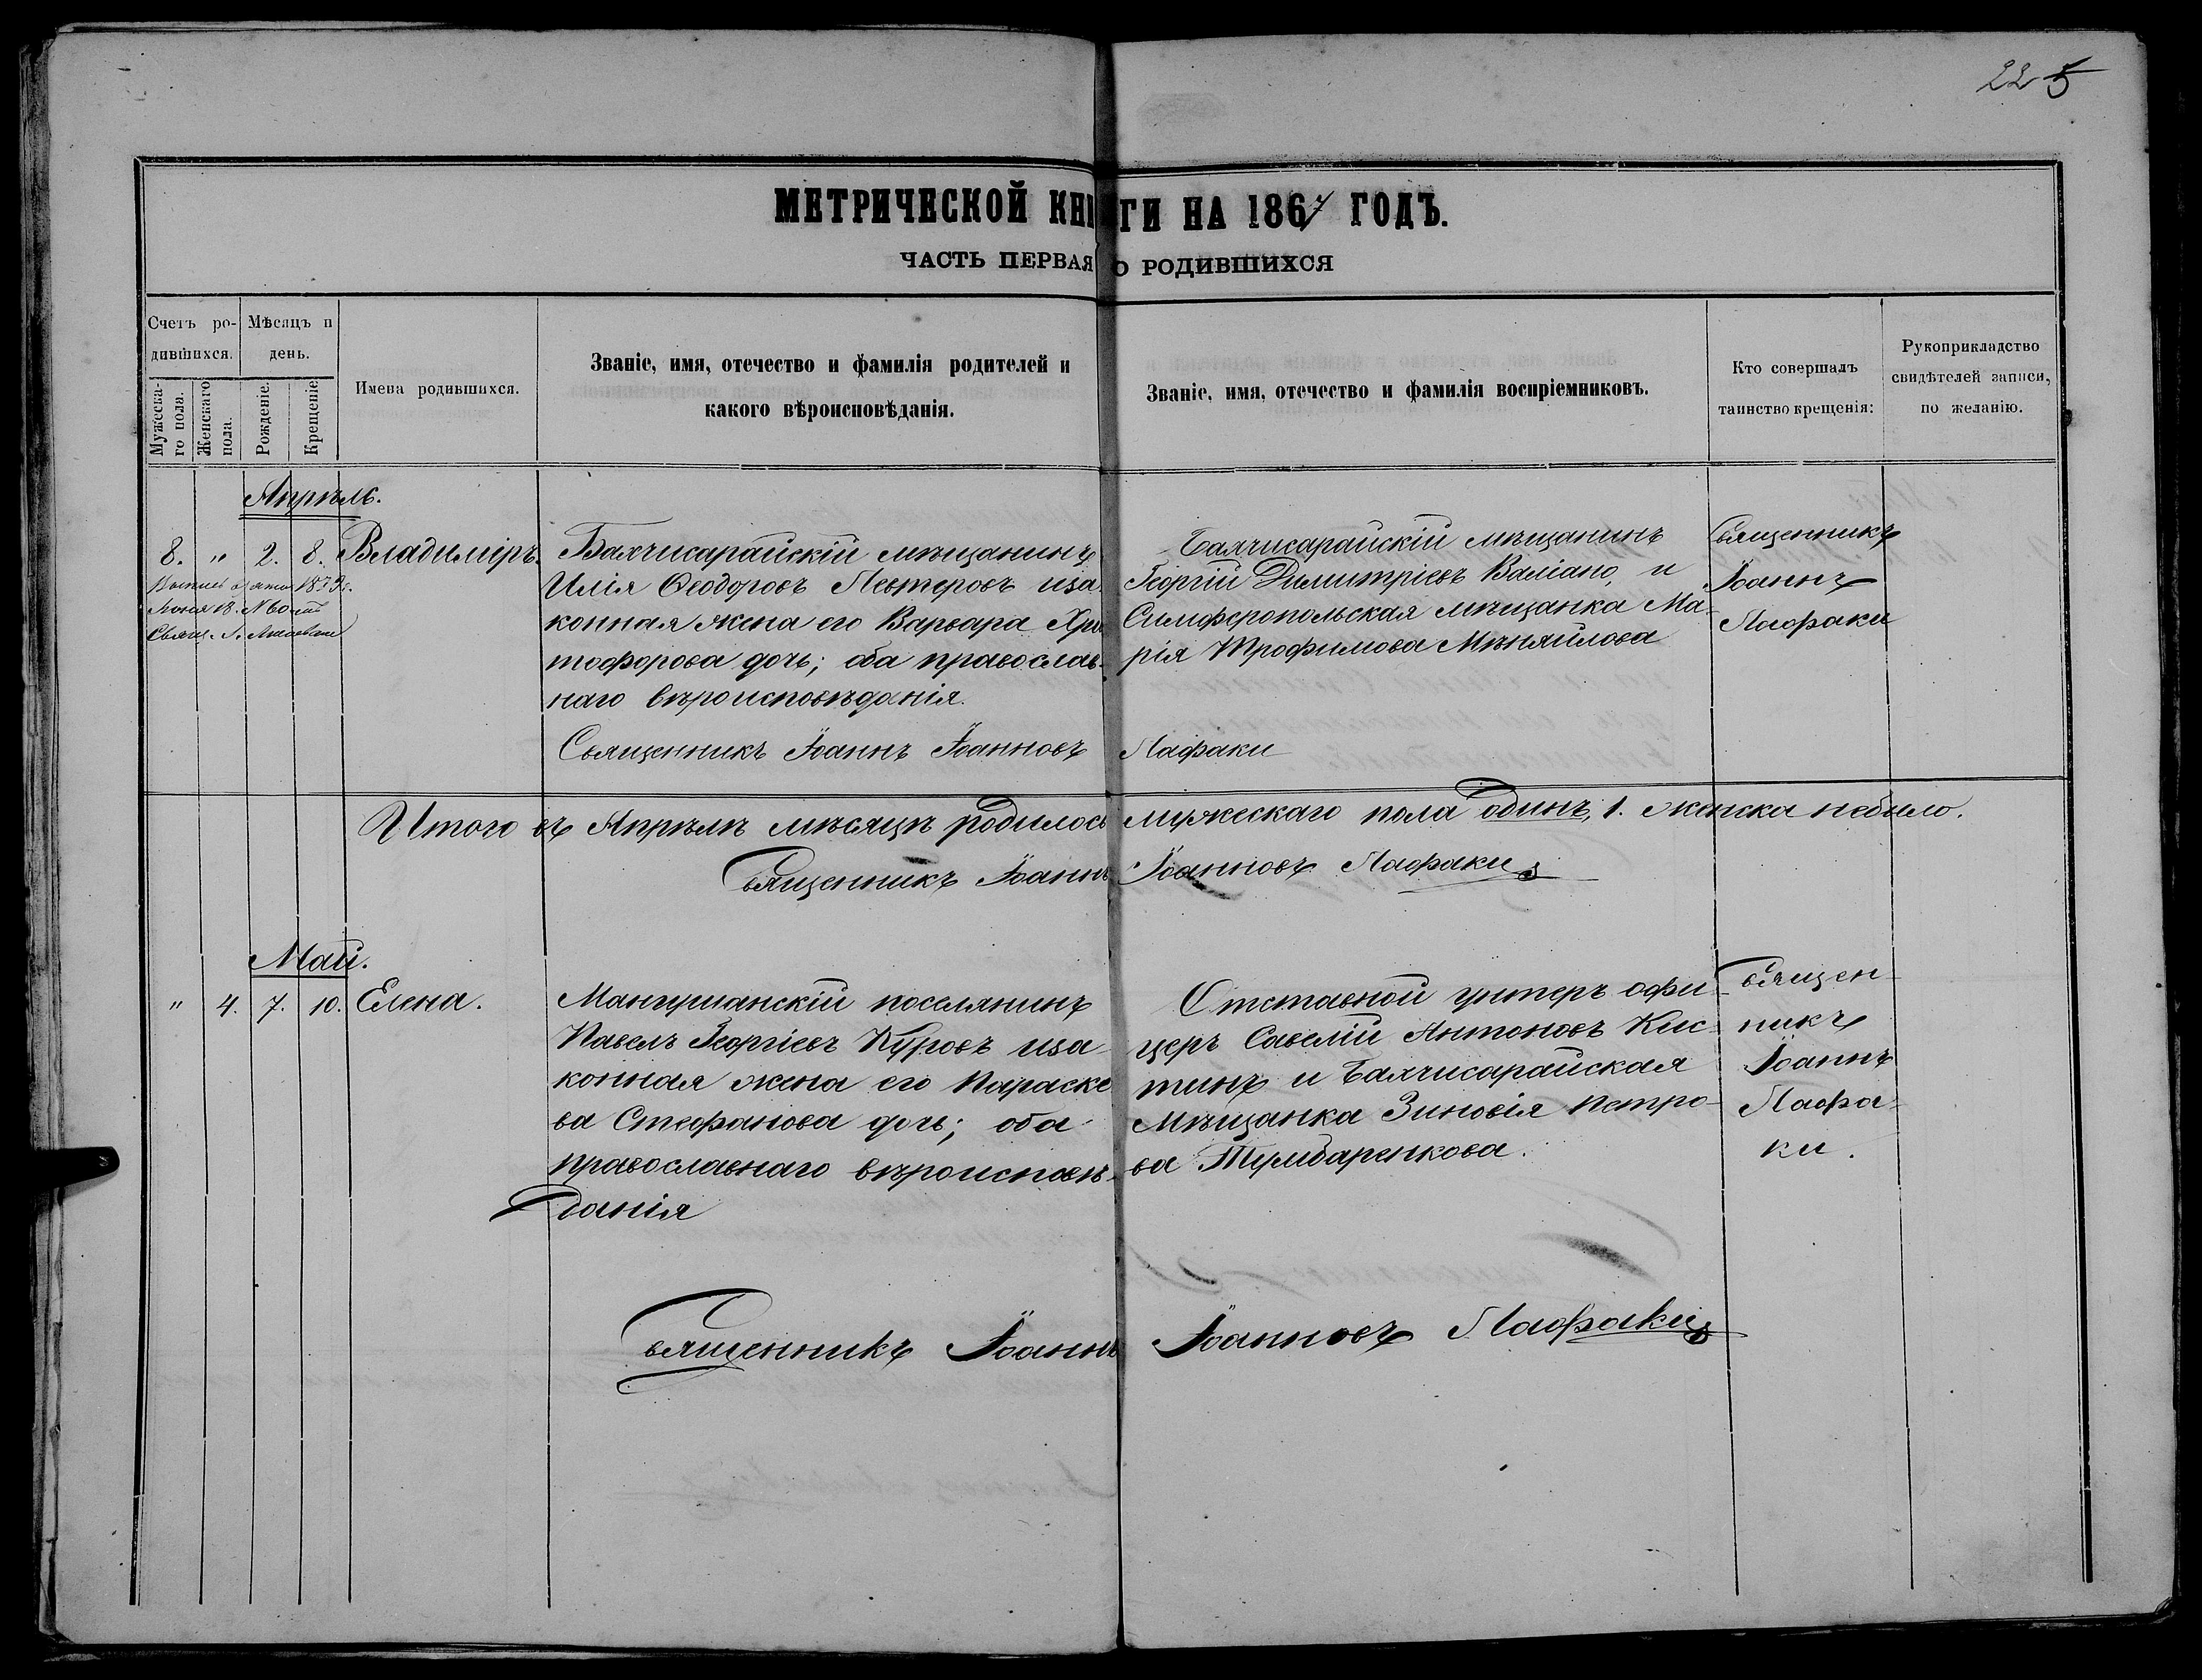 225
МЕТРИЧЕСКОЙ КНИГИ НА 1867 ГОДЪ.
ЧАСТЬ ПЕРВАЯ О РОДИВШИХСЯ
Счетъ ро-
дившихся.
Мужеска-
го пола.
Женскаго
пола.
Мѣсяцъ и
день.
Рожденіе.
Крещеніе.
Имена родившихся.
Званіе, имя, отечество и фамилія родителей и
какого вѣроисповѣданія.
Званіе, имя, отечество и фамилія воспріемниковъ.
Кто совершалъ
таинство крещенія:
Рукоприкладство
свидѣтелей записи,
по желанію.
Апрѣль.
8. " 2. 8. Владиміръ.
1873
Іюня 18. № 60
Свящ.
Бахчисарайскій мѣщанинъ
Илія Ѳеодоровъ Певтеровъ иза
конная жена его Варвара Хри
тофорова дочь; оба православ-
наго вѣроисповѣданія.
Бахчисарайскій мѣщанинъ
Георгій Димитріевъ Валіано, и
Симферопольская мѣщанка Ма-
рія Трофимова Мѣняйлова
Священникъ
Іоаннъ
Лафаки
Священникъ Іоаннъ Іоанновъ Лафаки
Итого въ Апрѣлѣ мѣсяцѣ родилось мужескаго пола одинъ, 1. женска небыло.
Священникъ Іоаннъ Іоанновъ Лафаки
Май.
" 4. 7. 10. Елена.
Мангушанскій поселянинъ
Павелъ Георгіевъ Куровъ иза
конная жена его Параске
ва Стефанова дочь; оба
православнаго вѣроисповѣ-
данія
Отставной унтеръ офи-
церъ Савелій Антоновъ Кис-
тинъ и Бахчисарайская
Мѣщанка Зиновія Петро-
ва Тумбаренкова.
Священ-
никъ
Іоаннъ
Лафа-
ки.
Священникъ Іоаннъ Іоанновъ Лафаки